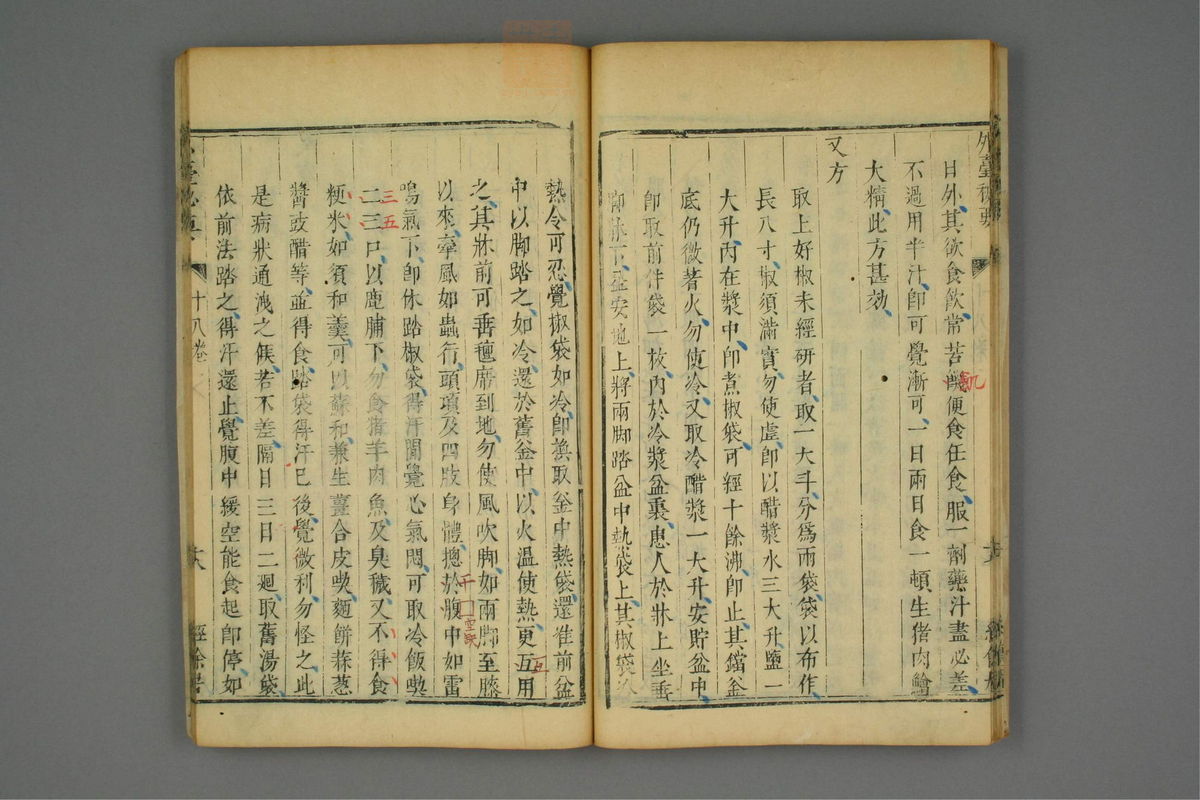 外臺秘要
日外其欲食飲常苦饑便食任食服一劑藥汁盡必差
不過用半汁即可覺漸可一日兩日食一頓生猪肉鱠
大精此方甚効
又方
取上好椒未經研者取一大斗分爲兩袋袋以布作
長八寸椒須滿實勿使虛即以醋漿水三大升鹽一
大升內在漿中即煮椒袋可經十餘沸即止其鐺釜
底仍微著火勿使冷又取冷醋漿一大升安貯盆中
即取前件袋一枚內於冷漿盆裏患人於牀上坐垂
脚牀下盆安地上將兩脚踏盆中熱袋上其椒袋
熱令可忍覺椒袋如冷即換取釜中熱袋還准前盆
中以脚踏之如冷還於舊釜中以火溫使熱更互用
之其牀前可垂氊席到地勿使風吹脚如兩脚至膝
以來牽風如蟲行頭項及四肢身體摠於腹中如雷
鳴氣下即休踏椒袋得汗開覺心氣悶可取冷飯喫
二三口以鹿脯下勿食猪羊肉魚及臭穢又不得食
粳米如須和羹可以蘇和兼生薑合皮喫麵餅蒜葱
醬豉醋等並得食踏袋得汗已後覺微利勿怪之此
是病狀通洩之候若不差隔日三日二廻取舊湯袋
依前法踏之得汗還止覺腹中緩空能食起即停如
十八卷
飢
互
三五
空